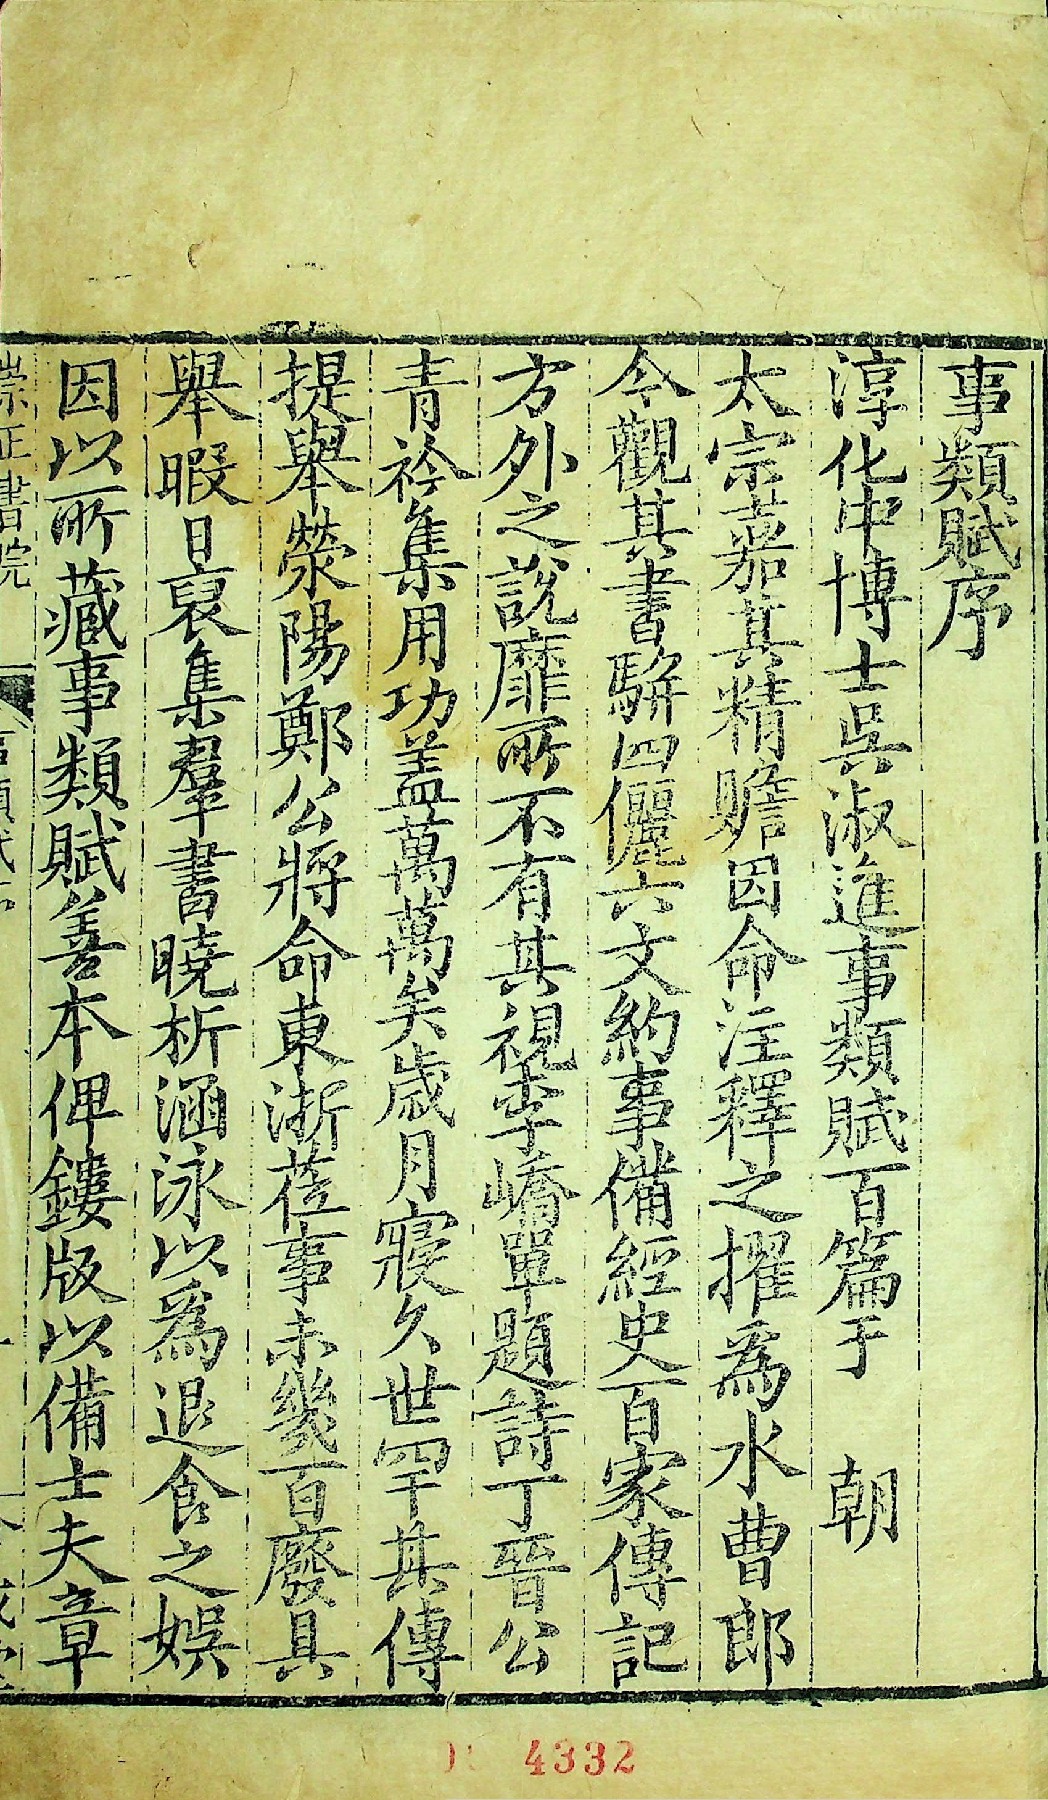 事類賦序
淳化中博士吳淑進事類賦百篇于　朝
太宗嘉其精贍因命注釋之擢為水曹郎
今觀其書駢四儷六文約事備經史百家傳記
方外之說靡所不有其視李嶠單題詩丁晉公
青衿集用功盖萬萬矣歲月寢久世罕其傳
提舉滎陽鄭公將命東浙莅事未幾百廢具
舉暇日裒集羣書曉析涵泳以為退食之娛
因以所藏事類賦善本俾鏤版以備士夫章
崇正書院
4332